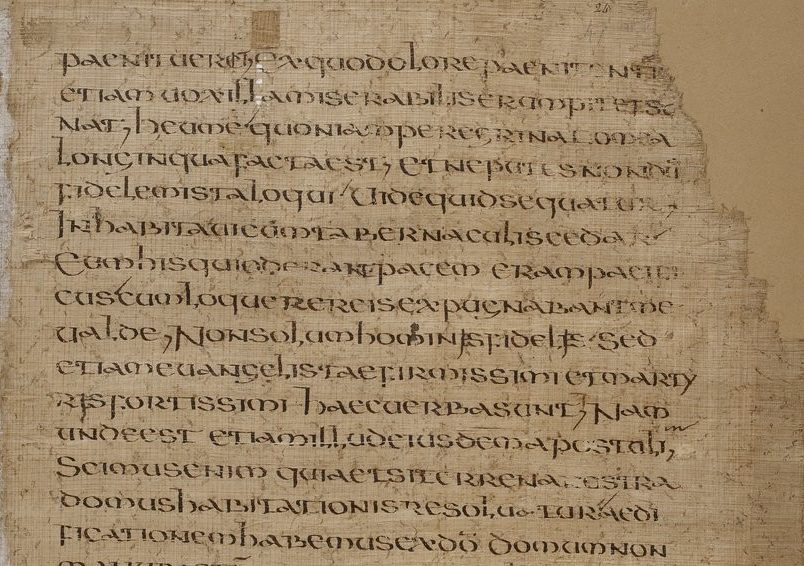 paenituerit, ex quo dolore paenitentis
etiam vox illa miserabilis erumpit et so
nat, heu me quoniam peregrinatio mea
longinqua facta est, et ne putes nondū
fidelem ista loqui vide quid sequatur,
Inhabitavi cum tabernaculis cedar
Cum his qui oderant pacem eram pacifi
cus cum loquerer eis expugnabant me
valde, Non solum hominis fidelis Sed
etiam evangelistae firmissimi et marty
ris fortissimi haec verba sunt, Nam
unde est etiam illud eiusdem apostoli,
Scimus enim quia etsi terrena nostra
domus habitationis resolvatur aedi
ficationem habemus ex dō domum non